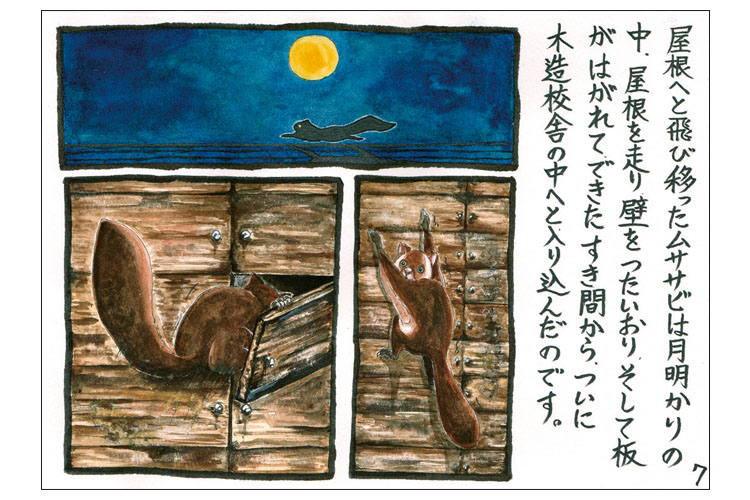 屋根へと飛び移ったムササビは月明かりの
中、屋根を走り壁をつたいおり、そして板
がはがれてできたすき間から、ついに
木造校舎の中へと入り込んだのです。
7